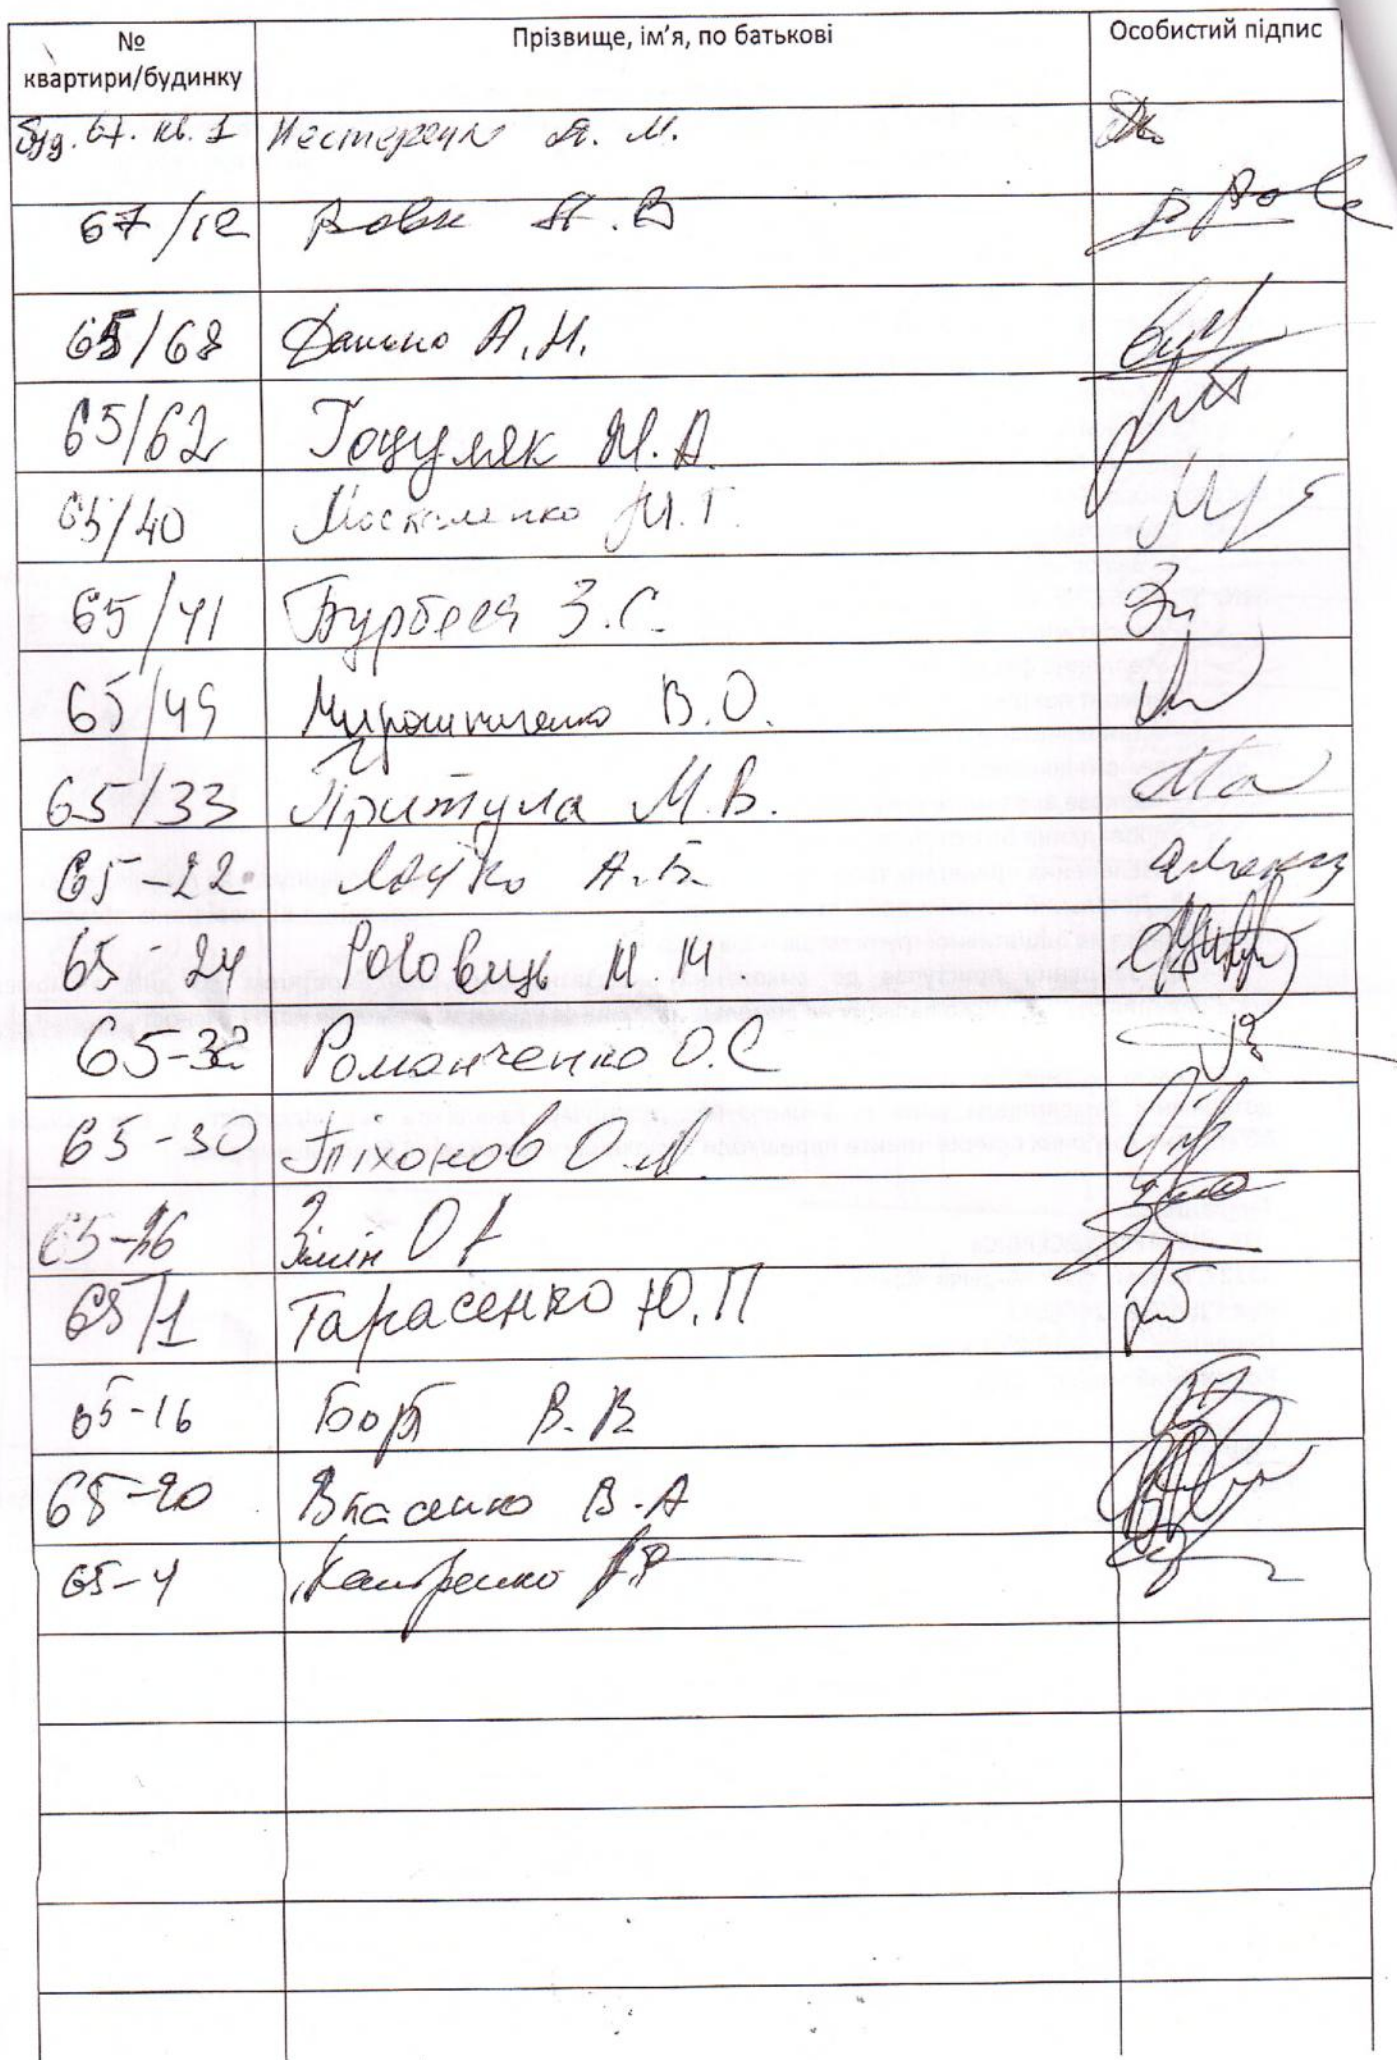 № квартири/будинку Прізвище, ім'я, по батькові Особистий підпис
буд. 67. кв. 1 Нестеренко Я. М.
67/12 Вовк А. В
65/68 Данько А.М.
65/62 Гоцуляк М.А.
65/40 Москаленко М.Г.
65/41 З.С.
65/49 Мирошниченко В.О.
65/33 Притула М.В.
65-22 А.Б.
65-24 Роговець М М
65-32 Романченко О.С
65-30 Тіхонов О.М.
Зімін О
65/1 Тарасенко Ю.П
65-16 Борт В.В
65-20 Власенко В.А
65-4